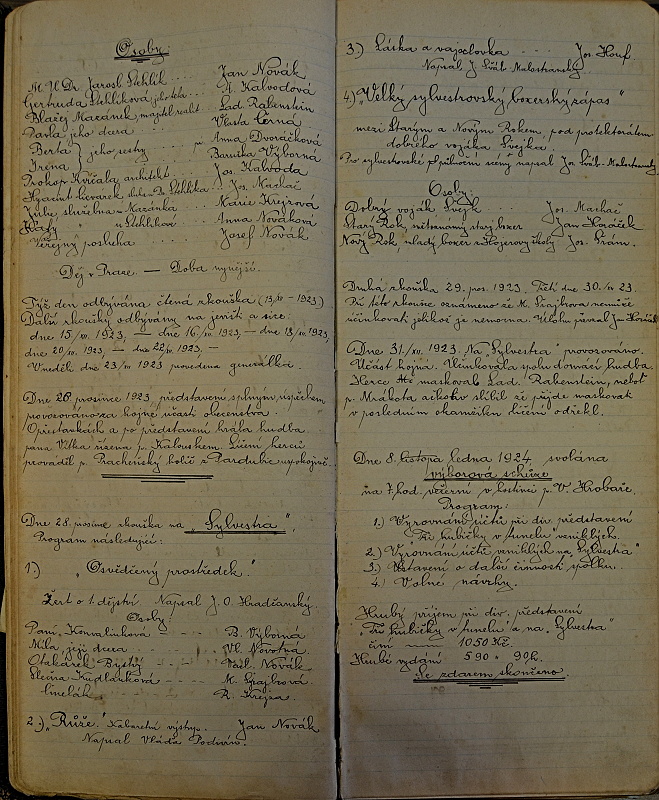 Osoby:
M. U. Dr. Jarosl. Lehlík . . . Jan Novák
Gertruda Lehlíková jeho teta . . A. Kalvodová
Blažej Mazánek, majitel realit . . Lad. Rabenstein
Pavla jeho dcera . . . Vlasta Černá
Berta } jeho sestry . . . Anna Dvořáčková
Irena } Baruška Výborná
Prokop Křičala architekt . . . Jos. Kalvoda
Hyacint sluha Dr. Lehlíka . . Jos. Machač
služebná u Mazánka . . Marie Krejzová
Káty " u Lehlíkové . . Anna Nováková
Veřejný posluha . . . Josef Novák
Děj v Praze. — Doba nynější.
Týž den odbývána čtená zkouška (13/XI – 1923)
Další zkoušky odbývány na jevišti a sice:
dne 15/XII. 1923, — dne 16/XII. — dne 18/XII 1923,
dne 20/XII. 1923, — dne 22/XII. —
V neděli dne 23/XII 1923 provedena generálka.
Dne 26. prosince 1923 představení s plným úspěchem
provozováno za hojné účasti obecenstva.
O přestávkách a po představení hrála hudba
pana Vítka řízena p. Kalouskem. Líčení herců
prováděl p. Prachenský holič z Pardubic uspokojivě.
Dne 28. prosince zkouška na „Sylvestra“,
Program následující:
1.) „Osvědčený prostředek.“
Žert o 1. dějství Napsal J. O. Hradčanský.
Osoby:
Paní Konvalinková - - - B. Výborná
Míla její dcera - - - Vl. Novotná
Otakárek Bystrý - - - Václ. Novák
Slečna Kudlánková - - M. Grajbrová
Šmelák - - - R. Krejza
2.) „Růže.“ Kabaretní výstup. Jan Novák
Napsal Vláďa Podivín.
3.) Láska a vajezlovka - - - Jos. Kouf.
Napsal J. Šváb-Malostranský.
4.) „Velký sylvestrovský boxerský zápas“
mezi Starým a Novým Rokem, pod protektorátem
dobrého vojáka Švejka.
Pro sylvestrovské půlnoční scény napsal Jos. Šváb-Malostranský
Osoby:
Dobrý voják Švejk Jos. Machač
Starý Rok, starý boxer Jan Horáček
Nový Rok, mladý boxer z školy Jos. Srám.
Druhá zkouška 29. pos. 1923. Třetí dne 30. XII 23.
Při této zkoušce oznámeno že M. nemůže
účinkovati jelikož je nemocna. Úlohu převzal Jan Horáček
Dne 31./XII. 1923 „Na Sylvestra“ provozováno.
Účast hojná. Účinkovala spolu domácí hudba.
Herce též maskoval Lad. Rabenstein, neboť
p. Mrákota ačkoliv slíbil že přijde maskovat
v posledním okamžiku líčení odřekl.
Dne 8. listopa ledna 1924, svolána
výborová schůze
na 7. hod. večerní v hostinci p. V. Hrobaře.
Program:
1.) Vyrovnání účtů při div. představení
„Tři hubičky v tunelu“ vzniklých.
2.) Vyrovnání účtů vzniklých „na Sylvestra“
3.) Ustavení o další činnosti spolku.
4.) Volné návrhy.
Hrubý příjem při div. představení
„Tři hubičky v tunelu a na „Sylvestra“
činí 1050 Kč.
Hrubé vydání 590 " 90 h.
Se zdarem skončeno.